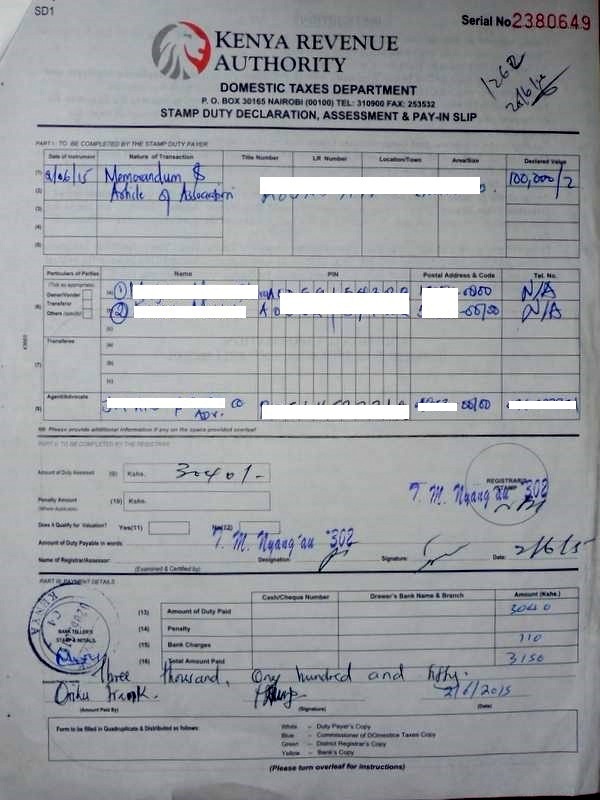 SD1
Serial No 2380649
KENYA REVENUE
AUTHORITY
DOMESTIC TAXES DEPARTMENT
P. O. BOX 30165 NAIROBI (00100) TEL: 310900 FAX: 253532
STAMP DUTY DECLARATION, ASSESSMENT & PAY-IN SLIP
PART I: TO BE COMPLETED BY THE STAMP DUTY PAYER
Date of Instrument Nature of Transaction Title Number LR Number Location/Town Area/Size Declared Value
(1) 2/06/15 Memorandum & 100,000/2
(2) Article of Association
(3)
(4)
(5)
Particulars of Parties Name PIN Postal Address & Code Tel. No.
(Tick as appropriate)
Owner/Vendor (a) 1 N/A
Transferor 2 00100 N/A
Others (specify)
(6) (c)
Transferee (a)
(b)
(7) (c)
Agent/Advocate
(8) co Adv. 00100
NB: Please provide additional information if any on the space provided overleaf
PART II: TO BE COMPLETED BY THE REGISTRAR
Amount of Duty Assessed (9) Kshs. 3040/-
REGISTRAR'S STAMP
Penalty Amount (10) Kshs.
(Where Applicable)
T. M. Nyang'au 302
Does it Qualify for Valuation? Yes(11) No(12)
Amount of Duty Payable in words
T. M. Nyang'au 302
Name of Registrar/Assessor: Designation: Signature: Date: 2/6/15
(Examined & Certified by)
PART III: PAYMENT DETAILS
Cash/Cheque Number Drawer's Bank Name & Branch Amount (Kshs.)
(13) Amount of Duty Paid 3040
(14) Penalty
(15) Bank Charges 110
(16) Total Amount Paid 3150
KENYA
BANK TELLER'S
STAMP & INITIALS
Three thousand, One hundred and fifty.
2/6/2015
(Amount Paid By) (Signature) (Date)
Form to be filled in Quadruplicate & Distributed as follows:
White – Duty Payer's Copy
Blue – Commissioner of DOmestice Taxes Copy
Green – District Registrar's Copy
Yellow – Bank's Copy
(Please turn overleaf for instructions)